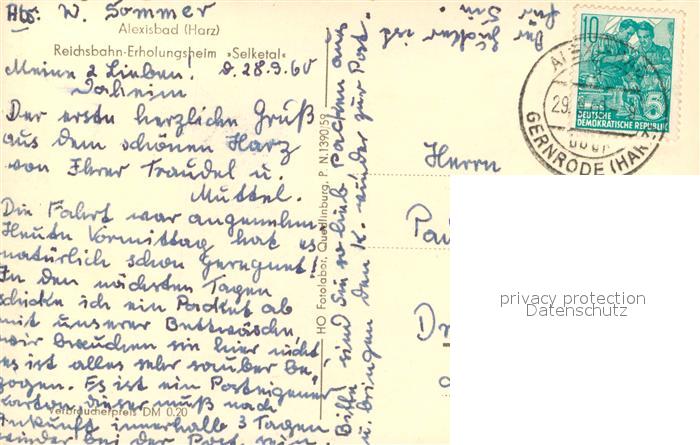 Abs. W. Sommer
Alexisbad (Harz)
Reichsbahn-Erholungsheim »Selketal«
Meine 2 Lieben! d. 28.3.60
Daheim
Der erste herzliche Gruß
aus dem schönen Harz
von Ihrer Traudel u.
Muttel.
Die Fahrt war angenehm
Heute Vormittag hat es
natürlich schon geregnet
In den nächsten Tagen
schicke ich ein Packet ab
mit unserer Bettwäsche
wir brauchen sie hier nicht
es ist alles sehr sauber be-
zogen. Es ist ein Posteigener
Karton dieser muß nach
Ankunft innerhalb 3 Tagen
wieder bei der Post sein.
Verbraucherpreis DM 0.20
Bitte sind Sie so lieb packen aus
u. bringen den K. wieder zur Post.
Der Zucker ist
für Sie.
HO Fotolabor, Quedlinburg, P. N. 1390/59
10
5
DEUTSCHE
DEMOKRATISCHE REPUBLIK
29.
über
GERNRODE (HARZ)
Herrn
privacy protection
Datenschutz